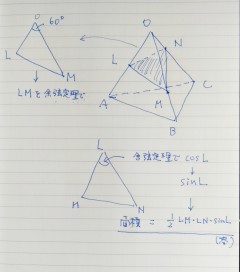 O
60°
L
M
↓
LMを余弦定理で
O
N
L
C
M
A
B
L
余弦定理で cosL
↓
sinL
↓
M
N
面積 = 1/2 LM・LN・sinL
(答)